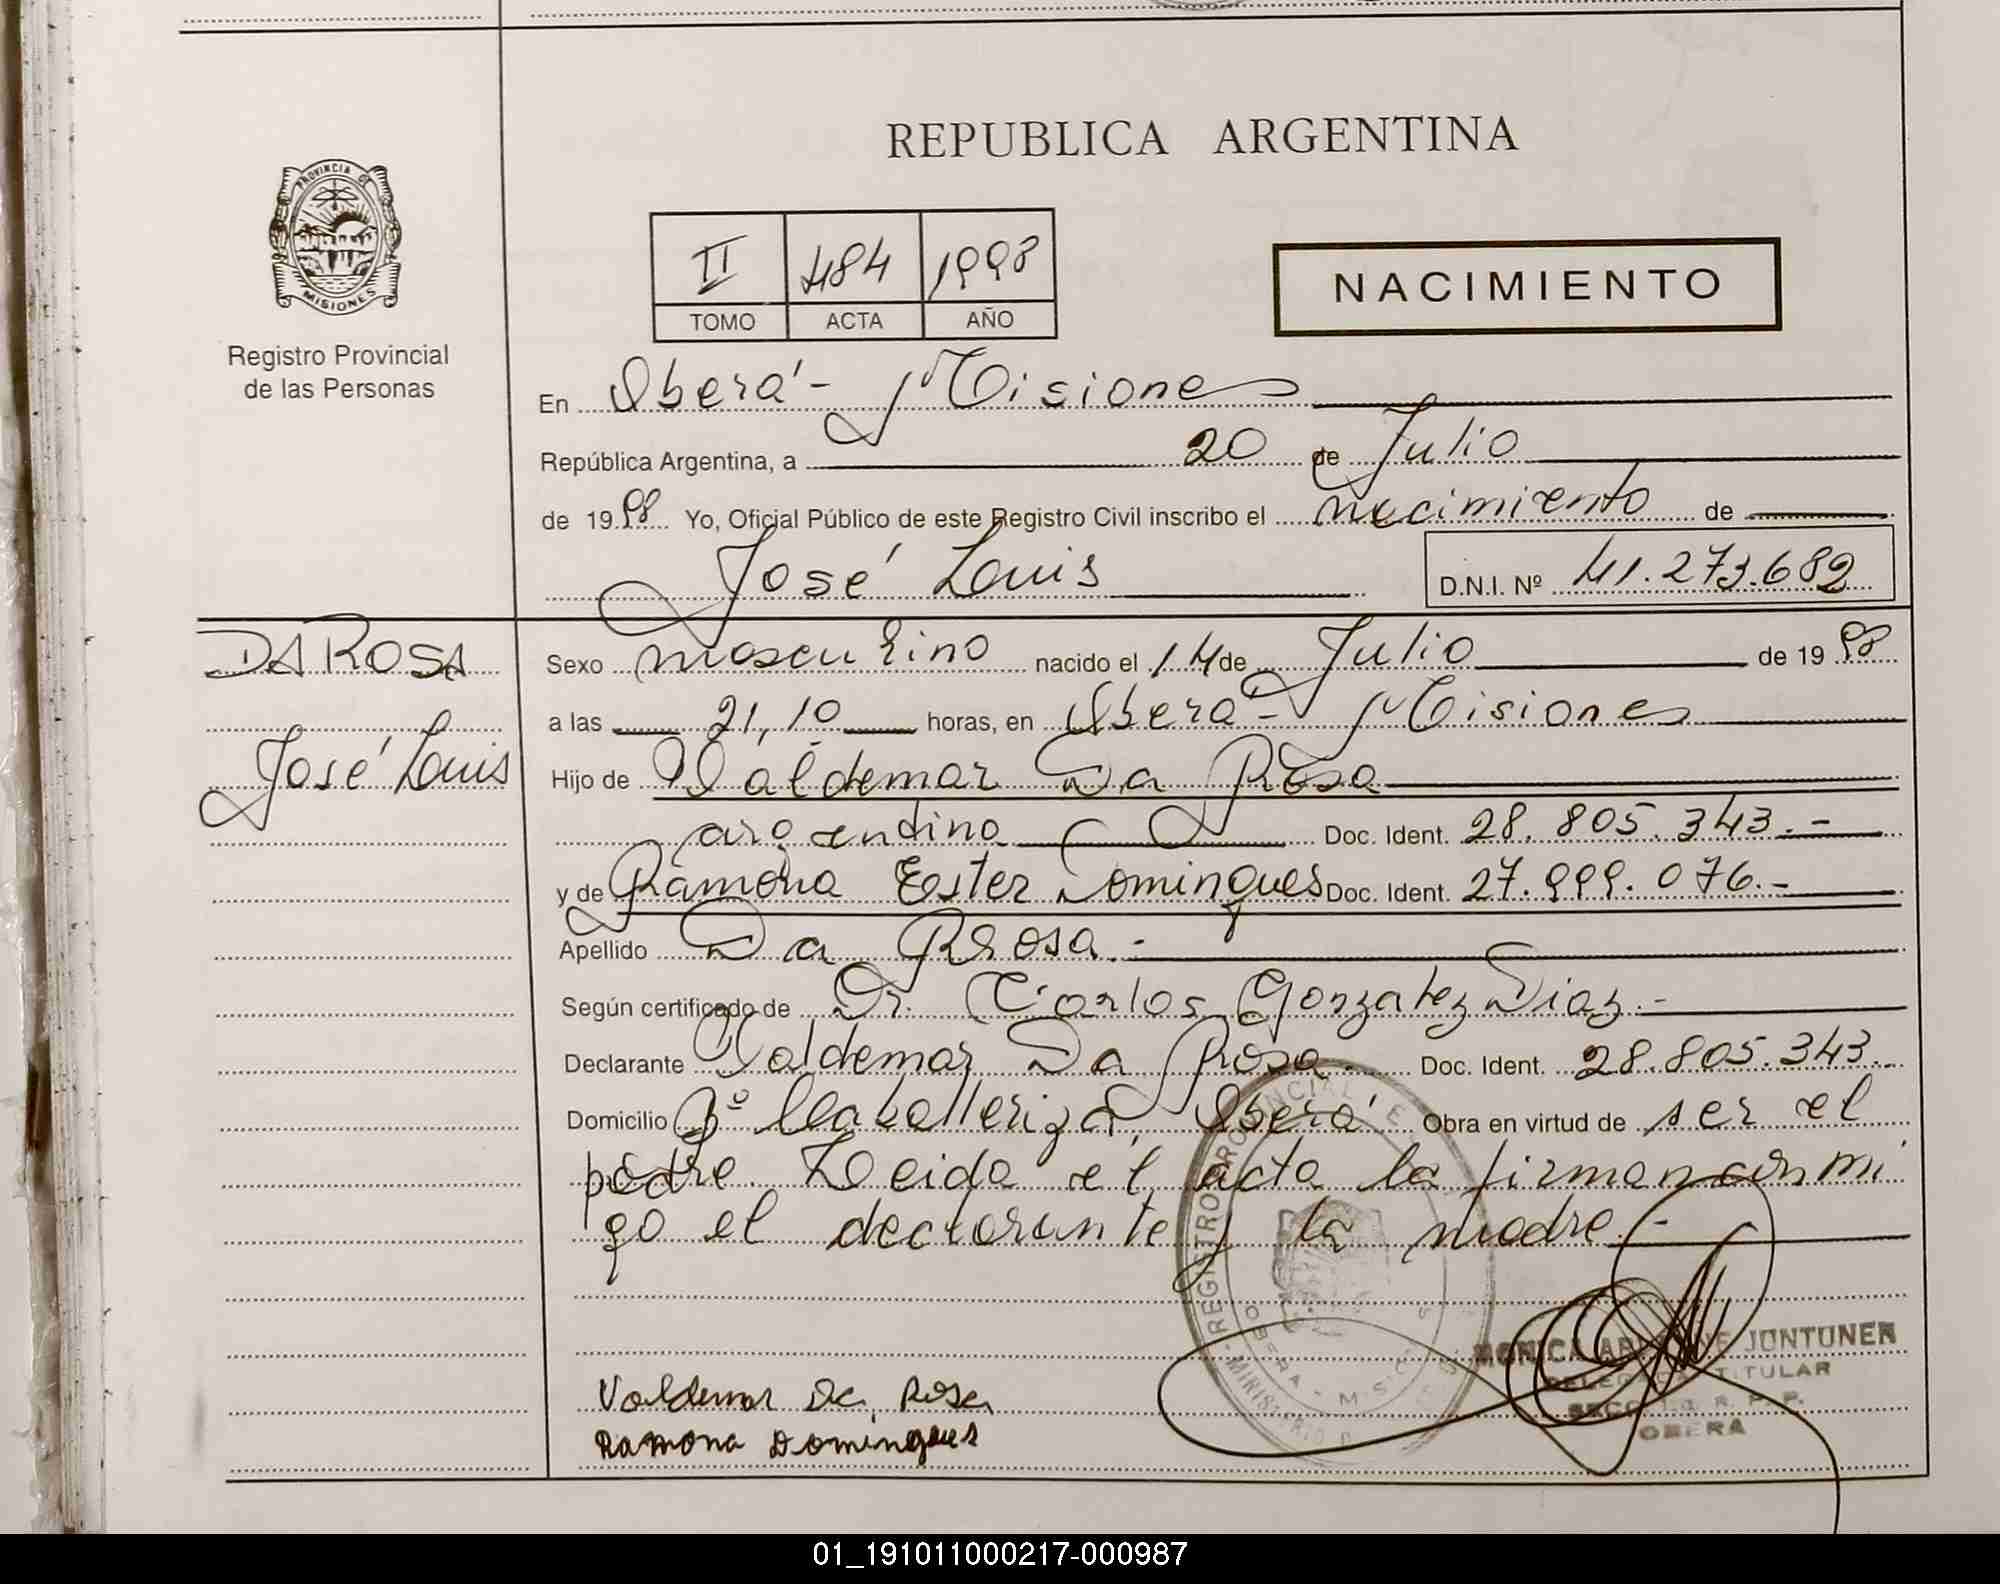 REPUBLICA ARGENTINA
PROVINCIA DE
MISIONES
Registro Provincial
de las Personas
II 484 1998
TOMO ACTA AÑO
NACIMIENTO
En Oberá - Misiones
República Argentina, a 20 de Julio
de 1998 Yo, Oficial Público de este Registro Civil inscribo el nacimiento de
José Luis D.N.I. Nº 41.273.682
DA ROSA
José Luis
Sexo masculino nacido el 14 de Julio de 1998
a las 21,10 horas, en Oberá - Misiones
Hijo de Valdemar Da Rosa
argentino Doc. Ident. 28.805.343.-
y de Ramona Ester Domingues Doc. Ident. 27.999.076.-
Apellido Da Rosa.-
Según certificado de Dr. Carlos Gonzalez Diaz.-
Declarante Valdemar Da Rosa. Doc. Ident. 28.805.343.
Domicilio Bº Caballeriza, Oberá Obra en virtud de ser el
padre. Leida el acta la firman conmi
go el declarante y la madre.-
REGISTRO PROVINCIAL
OBERA - MISIONES
MINISTERIO
MONICA JUNTUNEN
DELEGADA TITULAR
SECC. 1a. R. P. P.
OBERA
Valdemar Da Rosa
Ramona Domingues
01_191011000217-000987